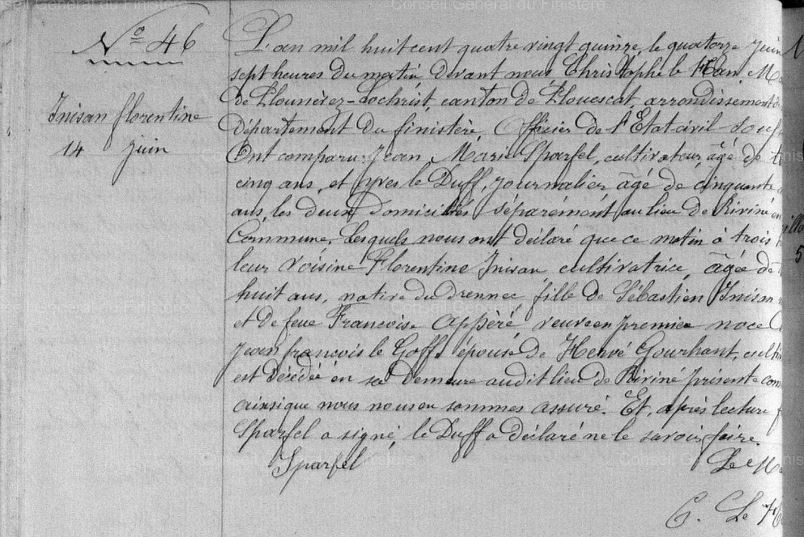 Conseil Général du Finistère
N° 46
Inisan florentine
14 juin
L'an mil huit cent quatre vingt quinze, le quatorze juin
sept heures du matin devant nous Christophe le
de Plounévez-Lochrist, canton de Plouescat, arrondissement de
département du finistère, Officier de l'Etat civil
Ont comparu: Jean Marie Sparfel, cultivateur, âgé de
cinq ans, et yves le Duff, journalier, âgé de cinquante
ans, les deux domiciliés séparément au lieu de Riviné en
Commune, Lesquels nous ont déclaré que ce matin à trois
leur voisine Florentine Inisan cultivatrice, âgée de
huit ans, native du drennec, fille de Sébastien Inisan
et de feue Francoise appéré veuve en premier noce
Jean francois le Goff épouse de Hervé Gourhant, culti
est décédée en sa demeure audit lieu de Riviné présente com
ainsi que nous nous en sommes assuré. Et, après lecture
Sparfel a signé, le Duff a déclaré ne le savoir faire.
Sparfel
Le M
C. Le